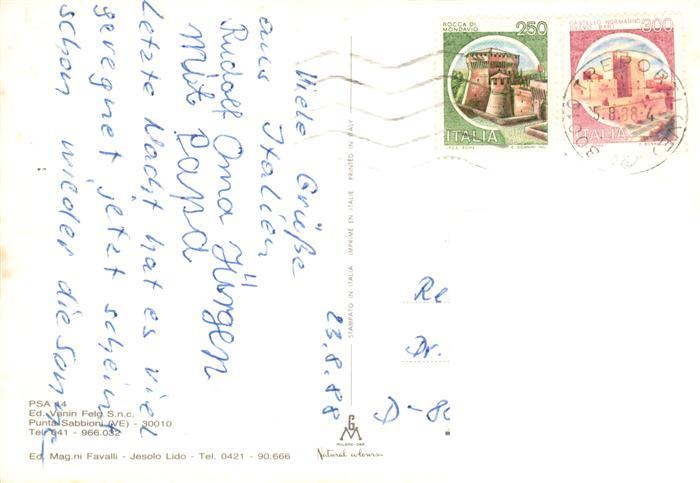 Viele Grüße
aus Italien
Rudolf Oma Jürgen
Mit Papa
Letzte Nacht hat es viel
geregnet jetzt scheint
schon wieder die Sonne
23.8.88
ROCCA DI
MONDAVIO
250
ITALIA
CASTELLO NORMANNO
SVEVO BARI
300
ITALIA
5.8.88-4
STAMPATO IN ITALIA IMPRIME EN ITALIE PRINTED IN ITALY
Re
Dr.
D-80
PSA
Ed. Vanin Felg S.n.c.
Punta Sabbioni (VE) - 30010
Tel. 041 - 966.032
Ed. Mag.ni Favalli - Jesolo Lido - Tel. 0421 - 90.666
Natural colours